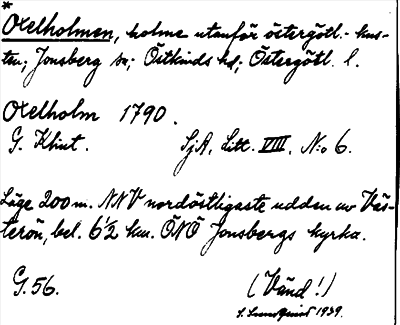 *
Oxelholmen, holme utanför östergötl.- kus-
ten; Jonsberg sn; Östkinds hd; Östergötl. l.
Oxelholm 1790.
G. Klint. SjA, Litt. VIII. N:o 6.
Läge 200 m. NNV nordöstligaste udden av Väs-
terön, bel. 6 1/2 km. ÖNÖ Jonsbergs kyrka.
G. 56. (Vänd!)
1939.